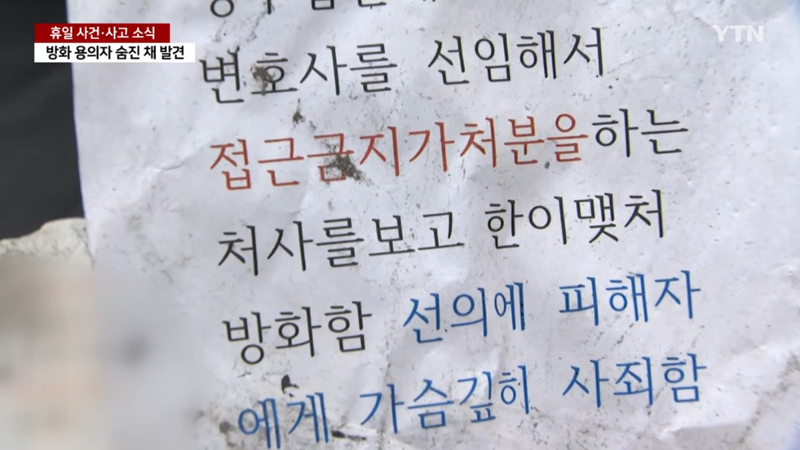 휴일 사건·사고 소식
방화 용의자 숨진 채 발견
YTN
변호사를 선임해서
접근금지가처분을하는
처사를보고 한이맺처
방화함 선의에 피해자
에게 가슴깊히 사죄함